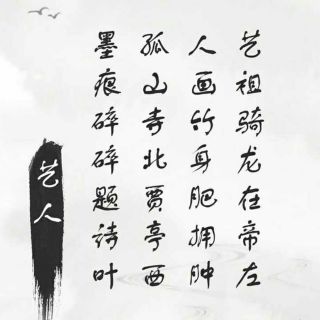 艺祖骑龙在帝左
人画竹身肥拥肿
孤山寺北贾亭西
墨痕碎碎题诗叶
艺人